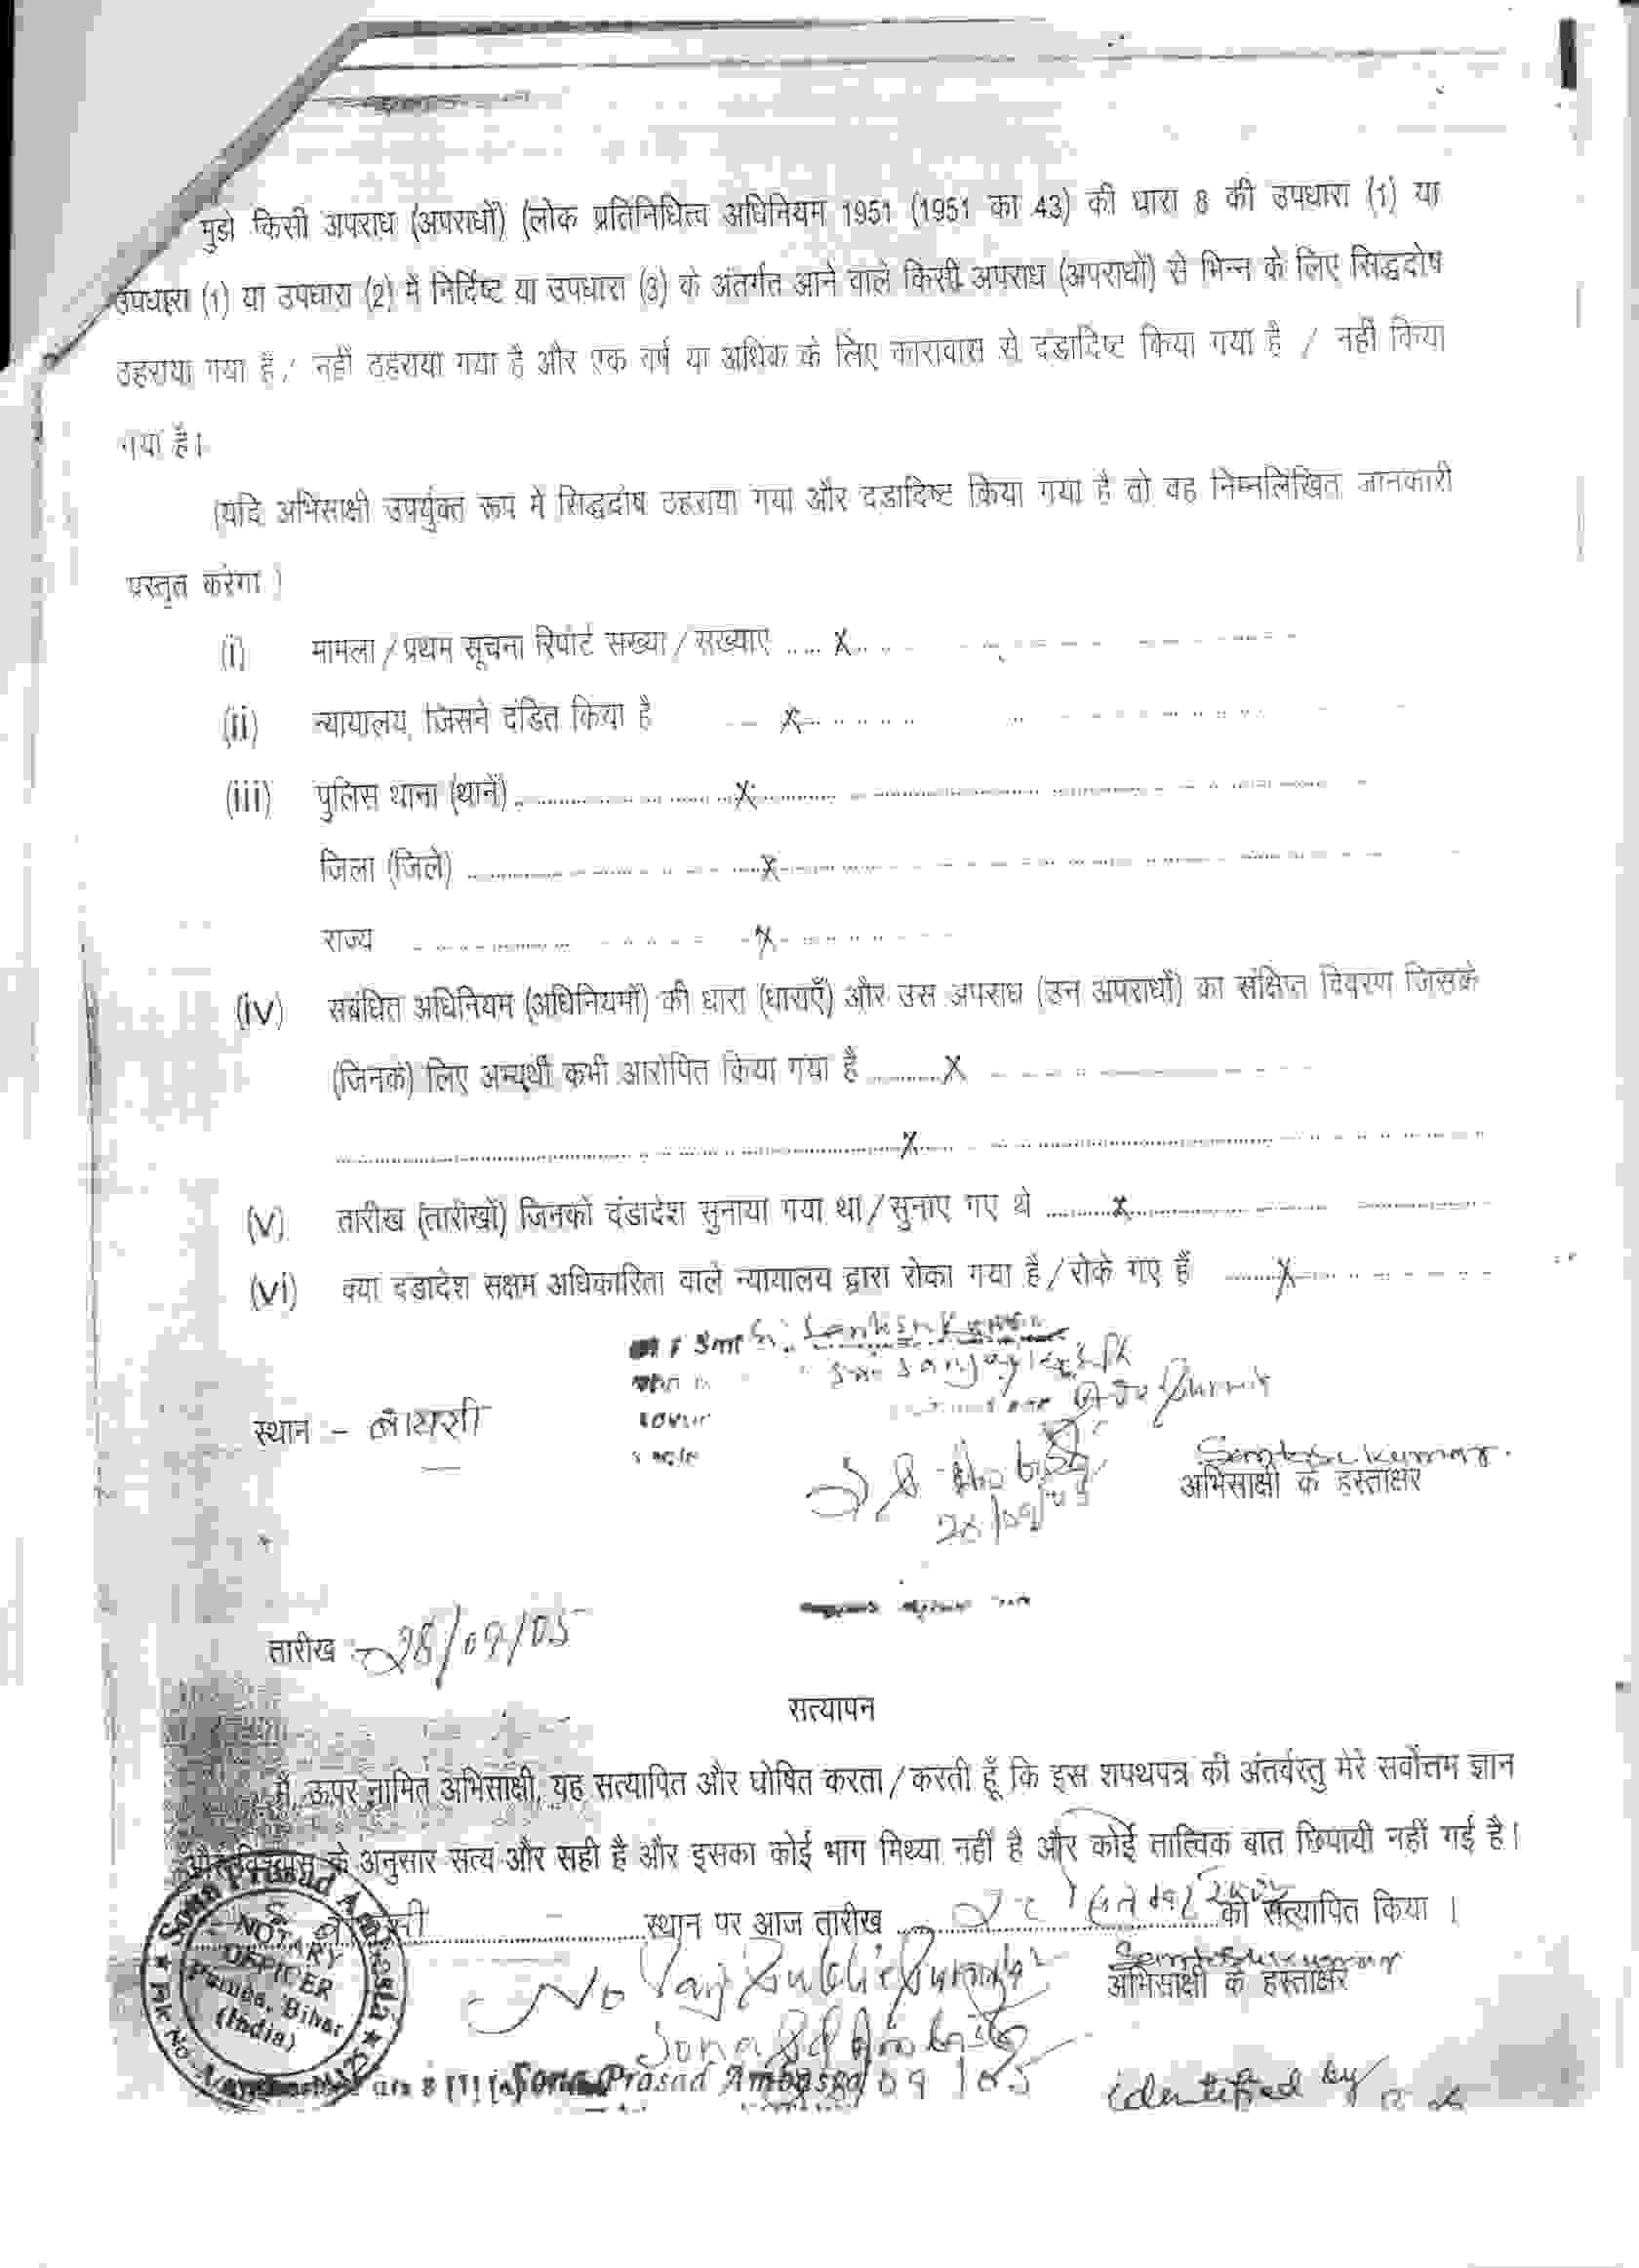 मुझे किसी अपराध (अपराधों) (लोक प्रतिनिधित्व अधिनियम 1951 (1951 का 43) की धारा 8 की उपधारा (1) या
उपधारा (1) या उपधारा (2) में निर्दिष्ट या उपधारा (3) के अंतर्गत आने वाले किसी अपराध (अपराधों) से भिन्न के लिए सिद्धदोष
ठहराया गया है / नहीं ठहराया गया है और एक वर्ष या अधिक के लिए कारावास से दंडादिष्ट किया गया है / नहीं किया
गया है।
(यदि अभिसाक्षी उपर्युक्त रूप में सिद्धदोष ठहराया गया और दंडादिष्ट किया गया है तो वह निम्नलिखित जानकारी
प्रस्तुत करेगा)
(i) मामला / प्रथम सूचना रिपोर्ट संख्या / संख्याएं ..... X
(ii) न्यायालय, जिसने दंडित किया है X
(iii) पुलिस थाना (थानें) ..... X
जिला (जिले) ..... X
राज्य X
(iv) संबंधित अधिनियम (अधिनियमों) की धारा (धाराएँ) और उस अपराध (उन अपराधों) का संक्षिप्त विवरण जिसके
(जिनके) लिए अभ्यर्थी कभी आरोपित किया गया है ..... X
..... X
(v) तारीख (तारीखों) जिनको दंडादेश सुनाया गया था / सुनाए गए थे ..... X
(vi) क्या दंडादेश सक्षम अधिकारिता वाले न्यायालय द्वारा रोका गया है / रोके गए हैं ..... X
स्थान -
Santosh Kumar.
अभिसाक्षी के हस्ताक्षर
तारीख - 28/09/05
सत्यापन
मैं, ऊपर नामित अभिसाक्षी, यह सत्यापित और घोषित करता / करती हूँ कि इस शपथपत्र की अंतर्वस्तु मेरे सर्वोत्तम ज्ञान
और विश्वास के अनुसार सत्य और सही है और इसका कोई भाग मिथ्या नहीं है और कोई तात्विक बात छिपायी नहीं गई है।
..... स्थान पर आज तारीख ..... को सत्यापित किया ।
Santosh Kumar
अभिसाक्षी के हस्ताक्षर
Sona Prasad Ambasta
NOTARY
OFFICER
Bihar
(India)
Sona Prasad Ambasta
09/05
identified by